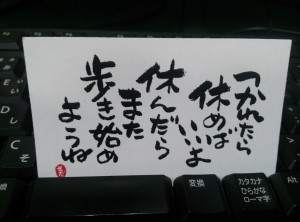 つかれたら
休めば
いいよ
休んだら
また
歩き始め
ようね
変換
カタカナ
ひらがな
ローマ字
Alt
C
そ